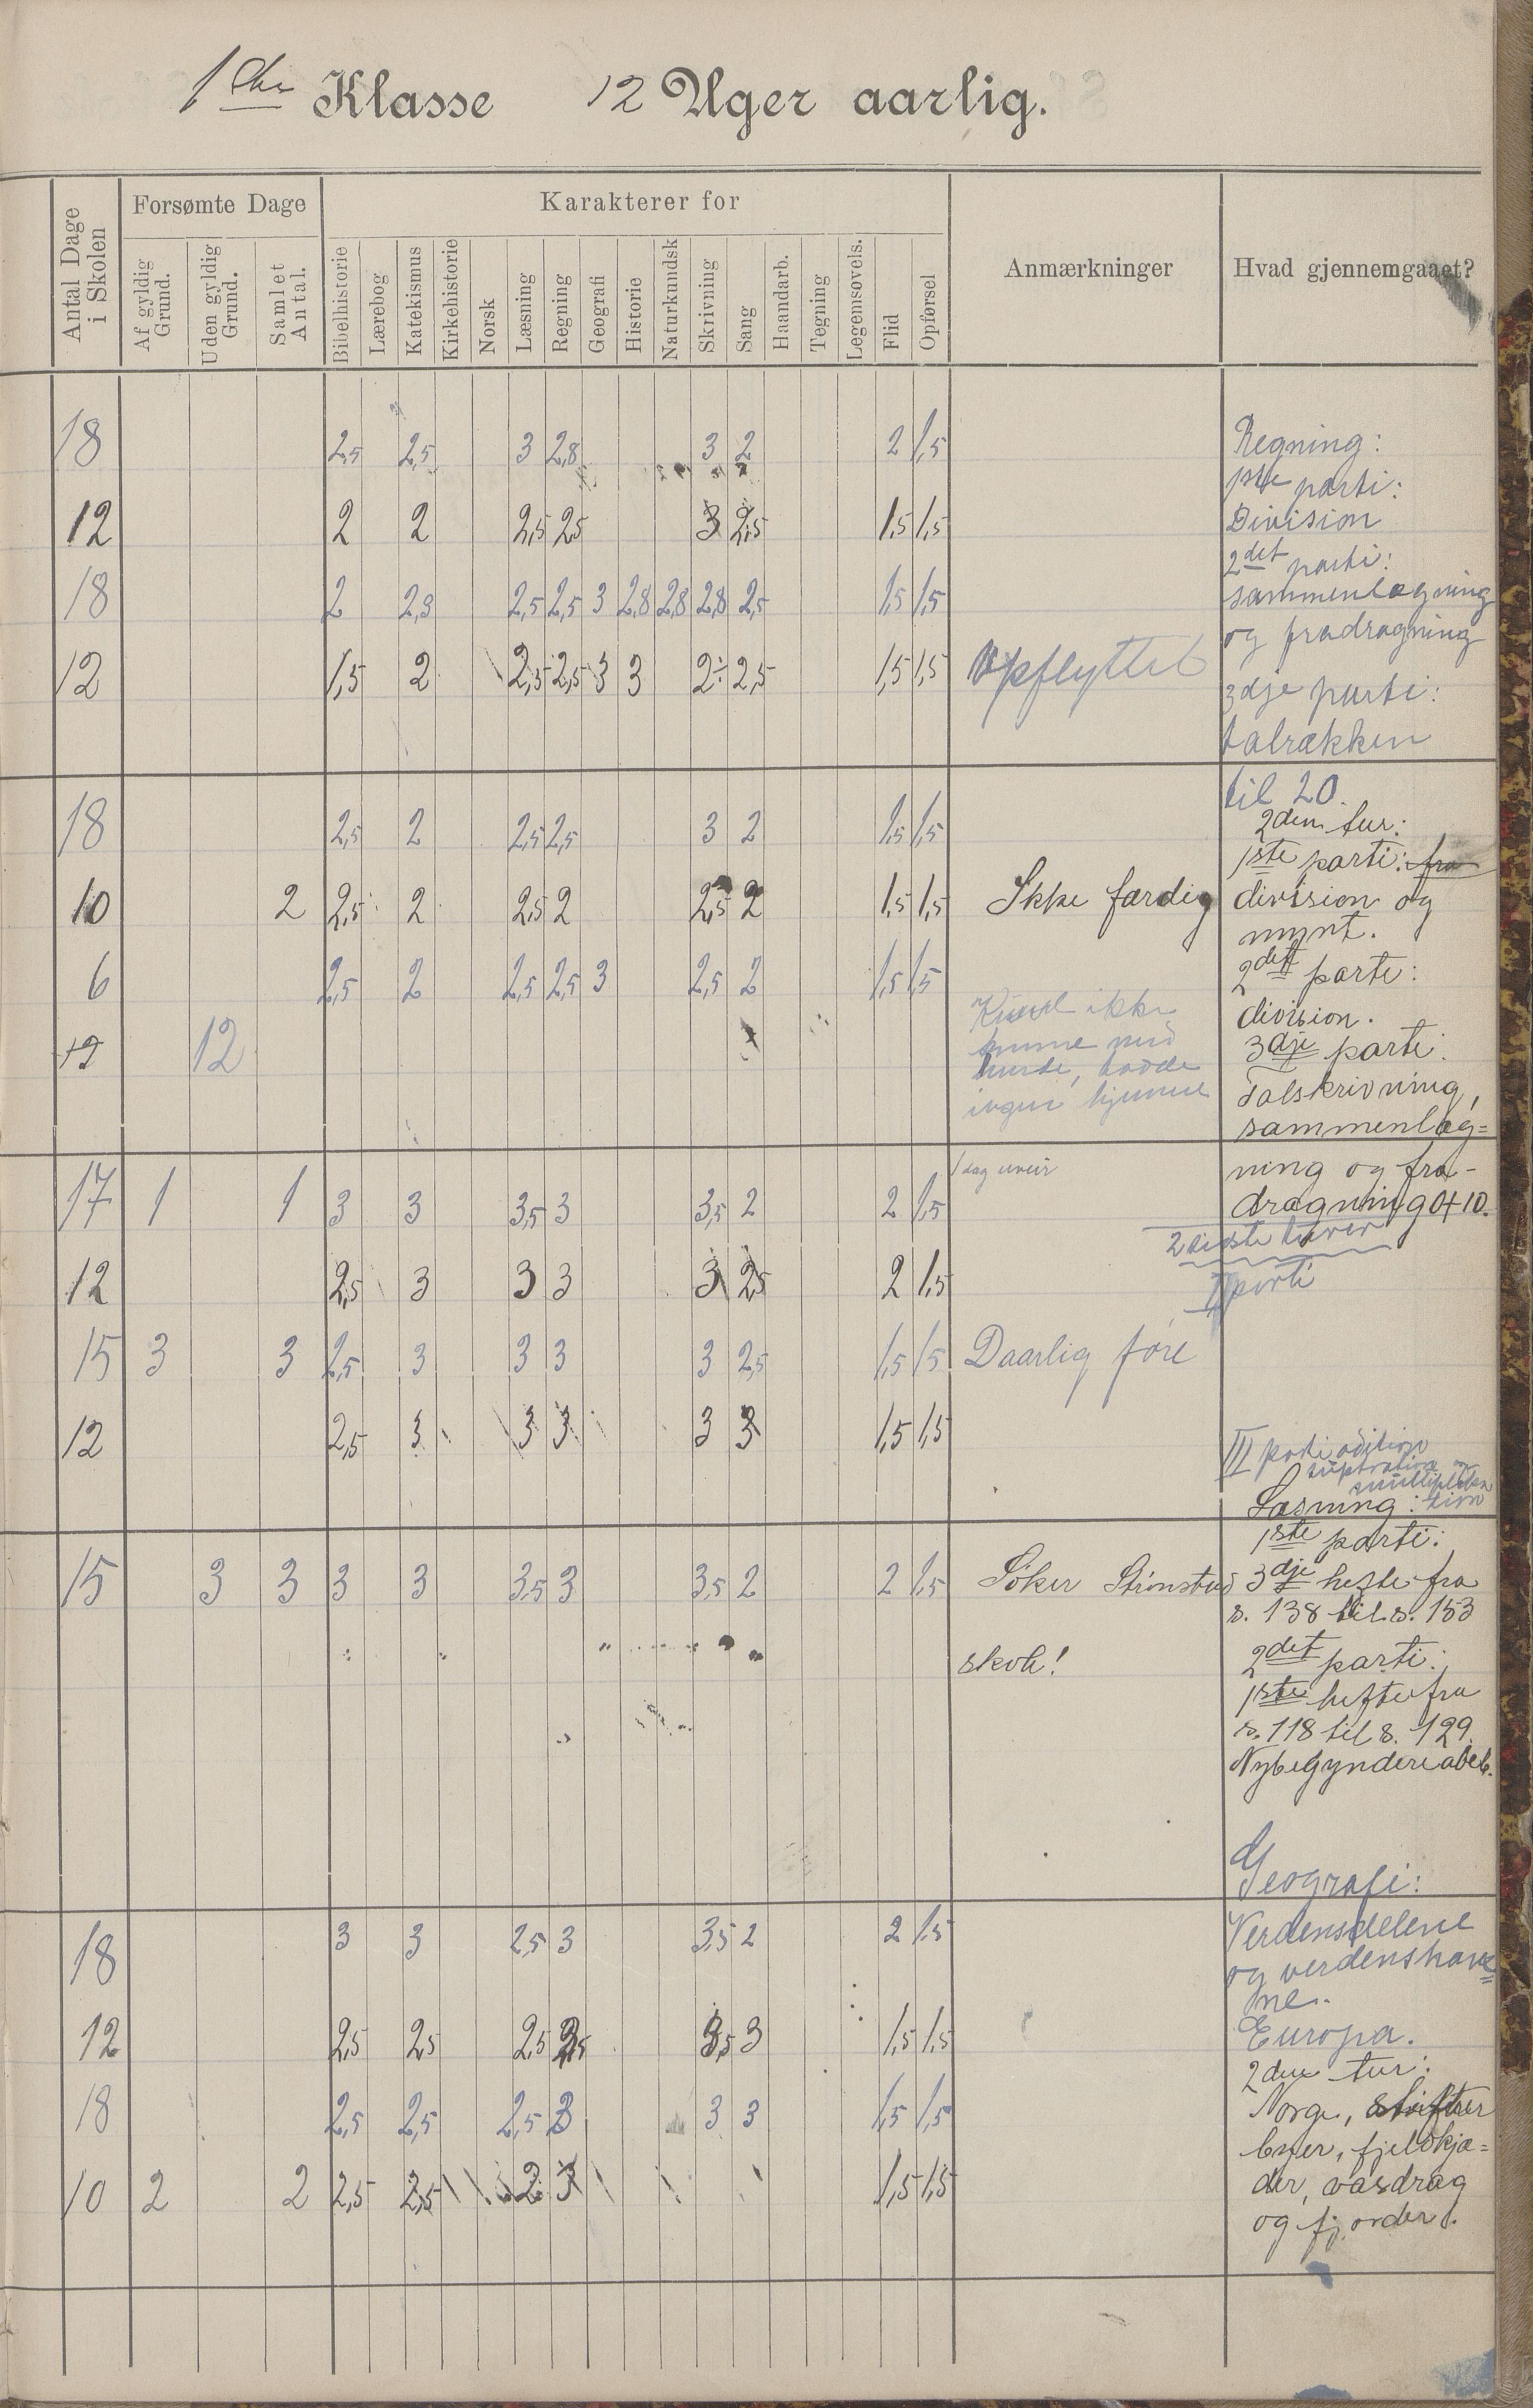 1ste Klasse 12 Uger aarlig.
Antal Dage i Skolen
Forsømte Dage
Af gyldig Grund.
Uden gyldig Grund.
Samlet Antal.
Karakterer for
Bibelhistorie
Lærebog
Katekismus
Kirkehistorie
Norsk
Læsning
Regning
Geografi
Historie
Naturkundsk
Skrivning
Sang
Haandarb.
Tegning
Legemsøvels.
Flid
Opførsel
Anmærkninger
Hvad gjennemgaaet?
18 2,5 2,5 3 2,8 3 2 2 1,5
12 2 2 2,5 2,5 3 2,5 1,5 1,5
18 2 2,3 2,5 2,5 3 2,8 2,8 2,8 2,5 1,5 1,5
12 1,5 2 2,5 2,5 3 3 2÷ 2,5 1,5 1,5 Opflyttet
18 2,5 2 2,5 2,5 3 2 1,5 1,5
10 2 2,5 2 2,5 2 2,5 2 1,5 1,5 Ikke færdig
6 2,5 2 2,5 2,5 3 2,5 2 1,5 1,5
12 12
ikke
ingen hjemme
17 1 1 3 3 3,5 3 3,5 2 2 1,5 1 dag uveir
12 2,5 3 3 3 3 2,5 2 1,5
15 3 3 2,5 3 3 3 3 2,5 1,5 1,5 Daarlig føre
12 2,5 3 3 3 3 3 1,5 1,5
15 3 3 3 3 3,5 3 3,5 2 2 1,5 Söker
skole!
18 3 3 2,5 3 3,5 2 2 1,5
12 2,5 2,5 2,5 2,5 3,5 3 1,5 1,5
18 2,5 2,5 2,5 3 3 3 1,5 1,5
10 2 2 2,5 2,5 2 3 1,5 1,5
Regning:
1ste parti:
Division
2det parti:
sammenlægning
og fradragning
3dje parti:
talrækken
til 20.
2den tur:
1ste parti: fra
division og
mynt.
2det parti:
division.
3dje parti:
Talskrivning,
sammenlæg=
ning og fra-
dragning 0+10.
2 sidste turer
II parti
III parti adition
suptration og
multiplika
tion
Læsning:
1ste parti:
3dje hefte fra
s. 138 til s. 153
2det parti:
1ste hefte fra
s. 118 til s. 129.
Nybegyndere abeb.
Geografi:
Verdensdelene
og verdenshave=
ne.
Europa.
2den tur:
Norge, stifter
byer, fjeldkjæ=
der, vasdrag
og fjorder.